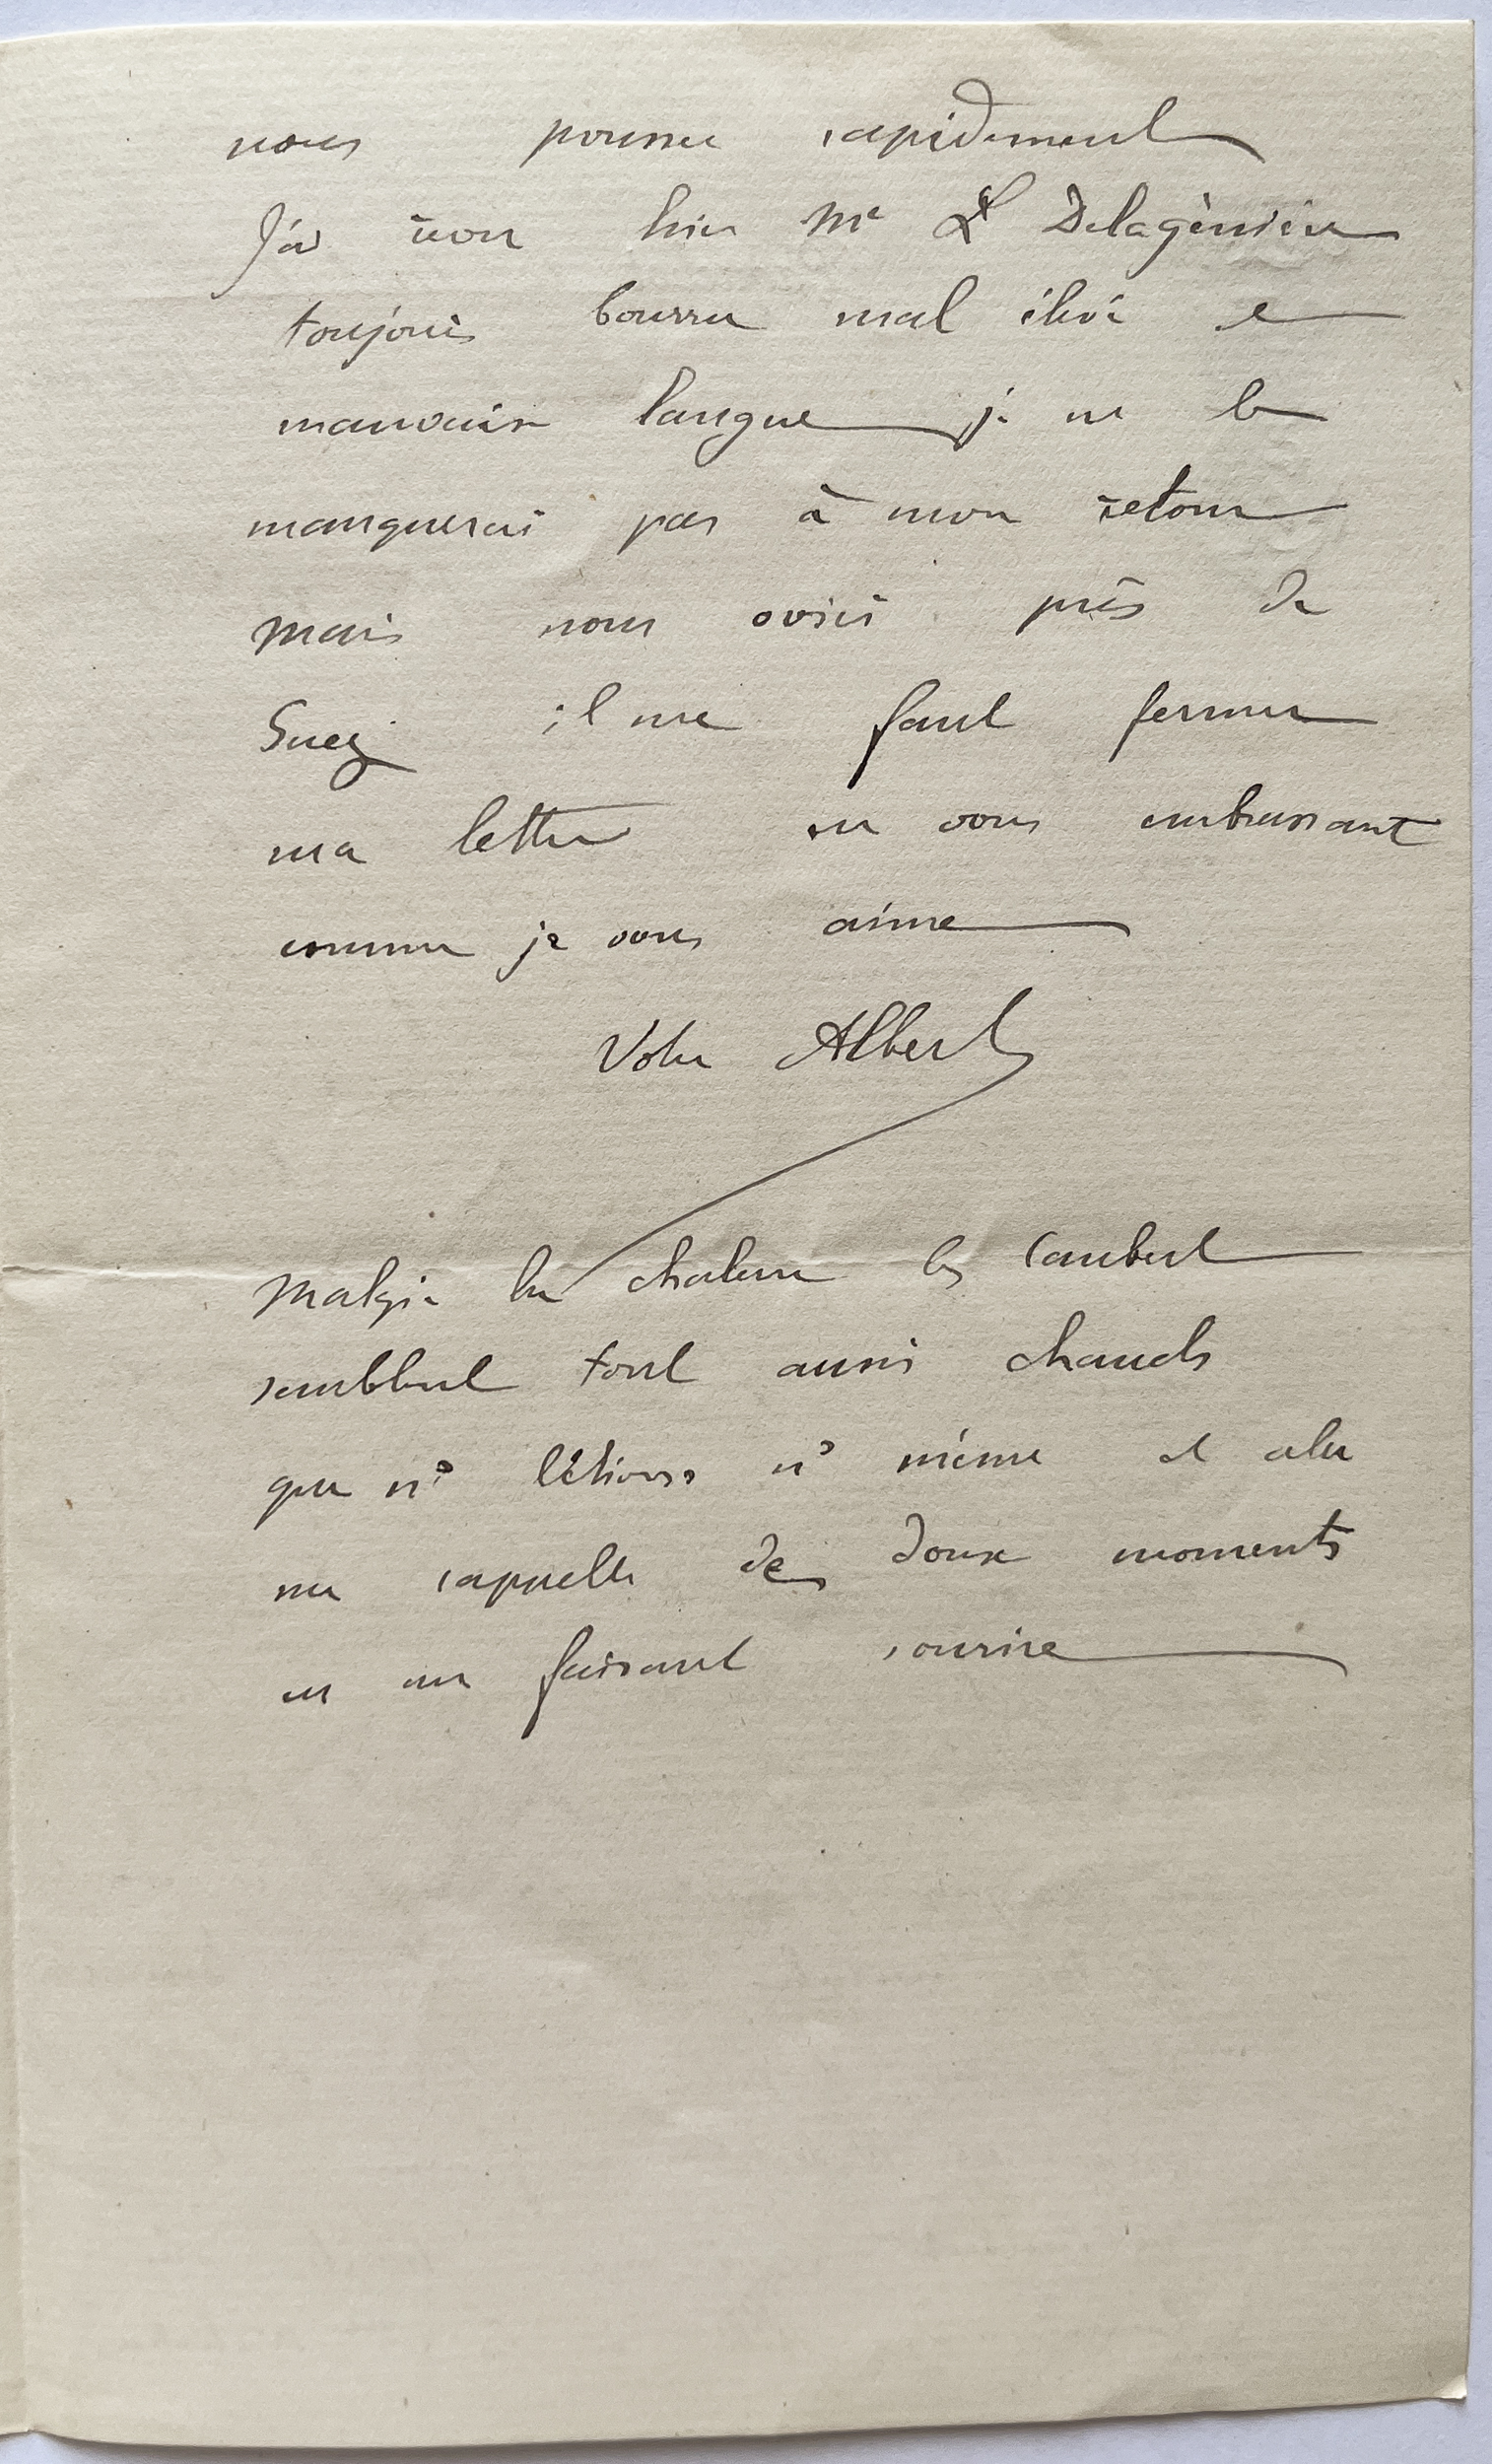 nous pousse rapidement
J'ai hier Mr L Delagénière
toujours bourru mal élevé e
mauvaise langue je ne le
manquerai pas à mon retour
Mais nous voici près de
Suez il me faut fermer
ma lettre en vous embrassant
comme je vous aime
Votre Albert
Malgré la chaleur les Lambert
semblent tout aussi chauds
que ns l'étions ns même et cela
me rappelle des doux moments
en me faisant sourire